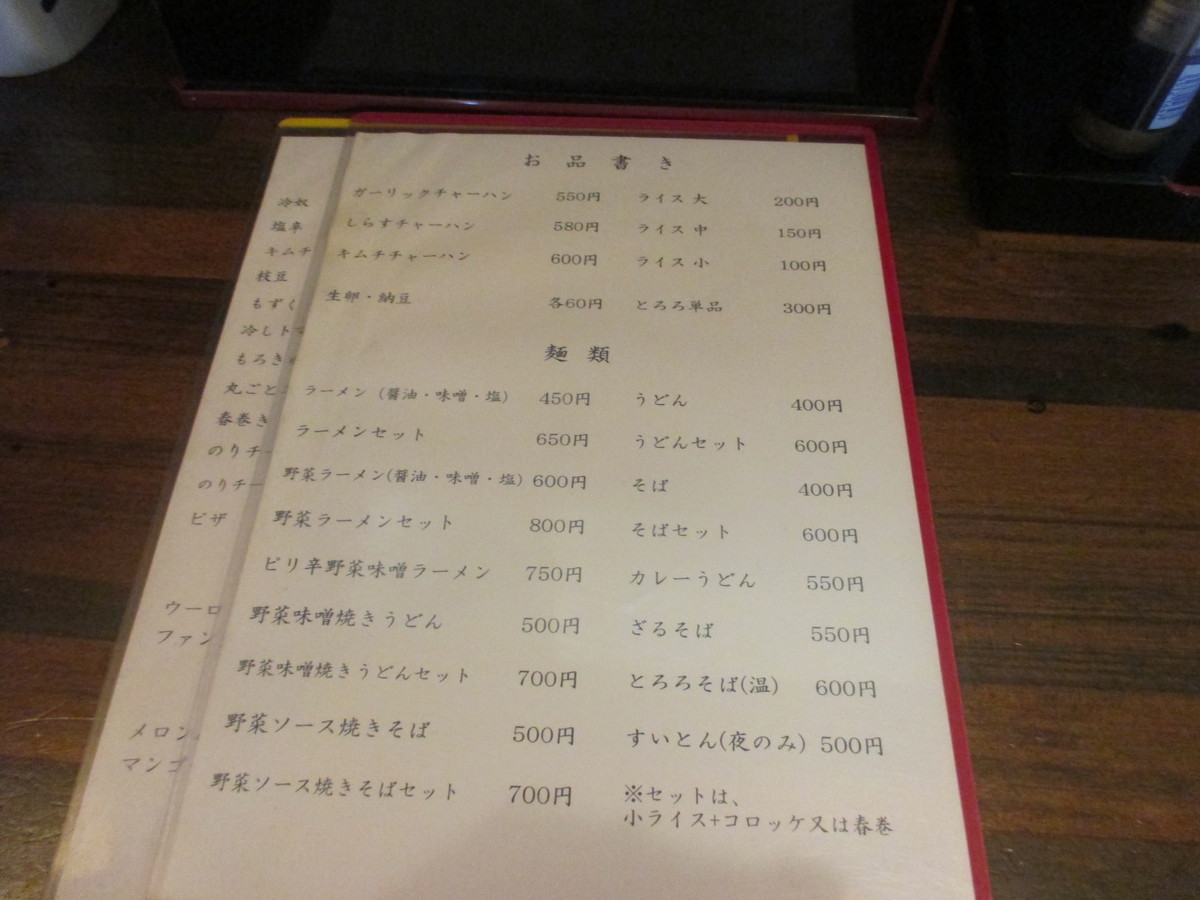 お品書き
ガーリックチャーハン 550円 ライス 大 200円
しらすチャーハン 580円 ライス 中 150円
キムチチャーハン 600円 ライス 小 100円
生卵・納豆 各60円 とろろ単品 300円
麺類
ラーメン (醤油・味噌・塩) 450円 うどん 400円
ラーメンセット 650円 うどんセット 600円
野菜ラーメン(醤油・味噌・塩) 600円 そば 400円
野菜ラーメンセット 800円 そばセット 600円
ピリ辛野菜味噌ラーメン 750円 カレーうどん 550円
野菜味噌焼きうどん 500円 ざるそば 550円
野菜味噌焼きうどんセット 700円 とろろそば(温) 600円
野菜ソース焼きそば 500円 すいとん(夜のみ) 500円
野菜ソース焼きそばセット 700円 ※セットは、
小ライス+コロッケ又は春巻
冷奴
塩辛
キムチ
枝豆
もずく
冷しト
もろき
丸ごと
春巻き
のりチー
のりチー
ピザ
ウーロ
ファン
メロン
マンゴ